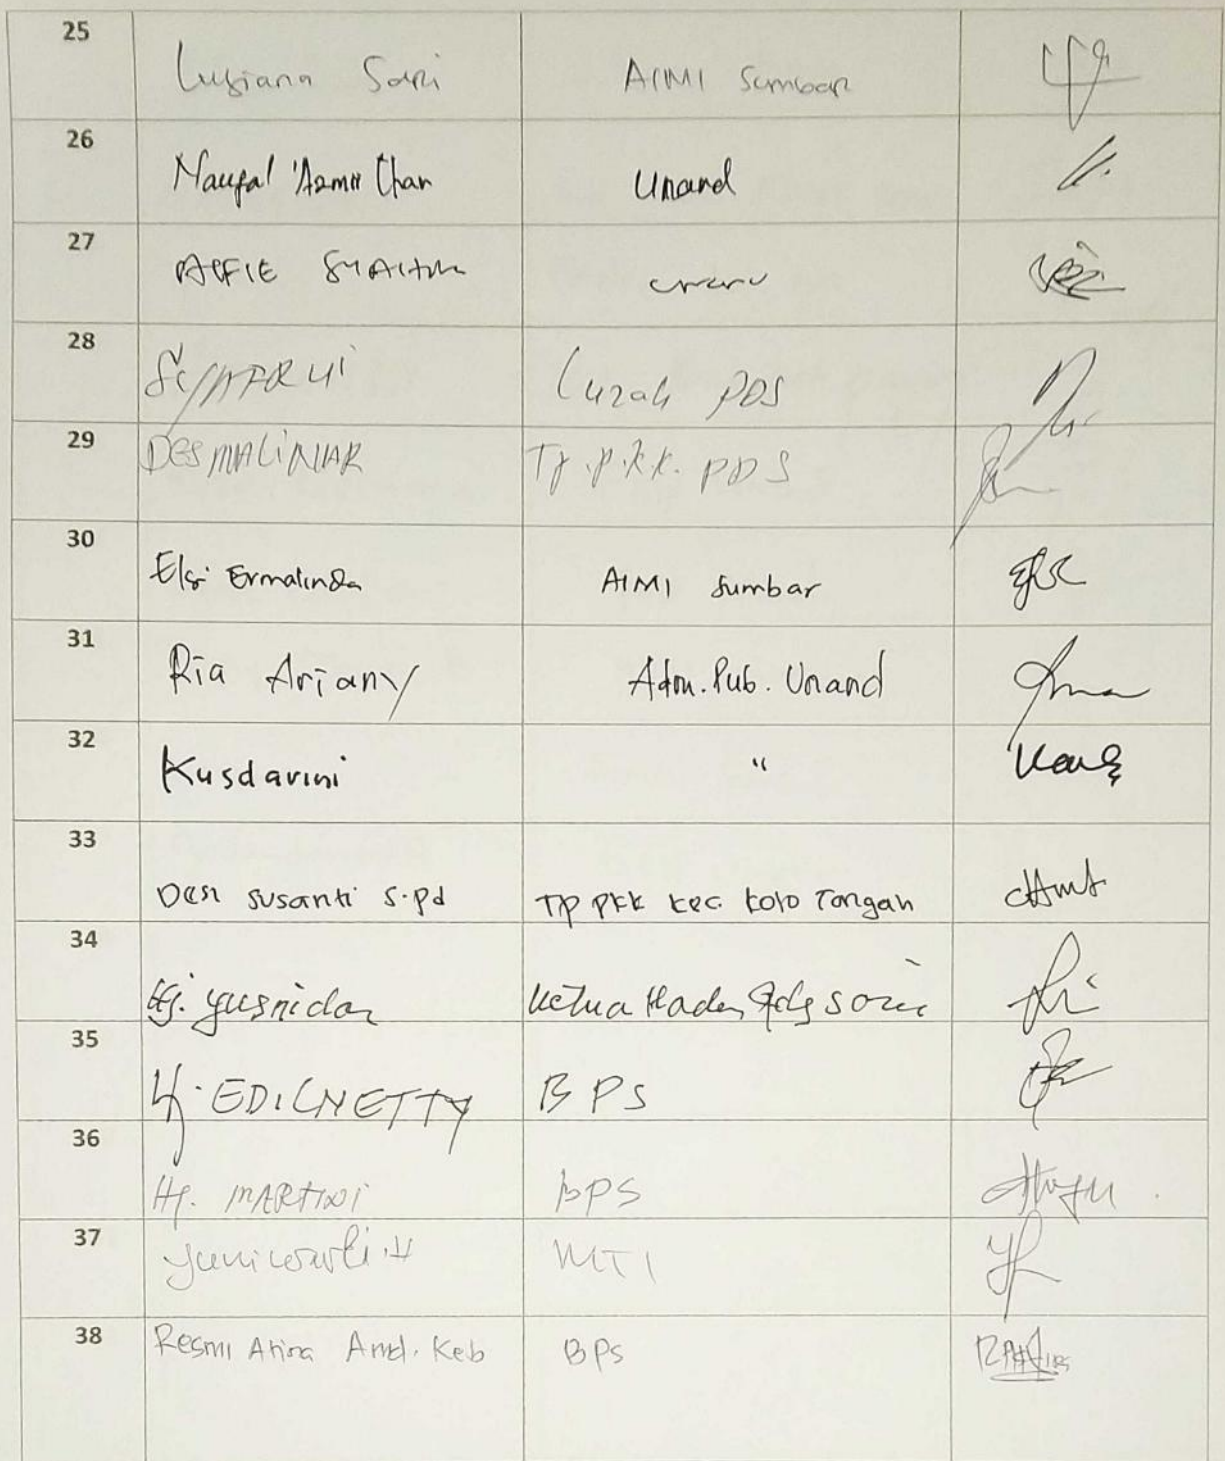 25 Lusiana Sari AIMI Sumbar
26 Naufal 'Azmii Chan Unand
27
28 Lurah PDS
29 DESMALINIAR TP.P.KK. PDS
30 Elsi Ermalinda AIMI Sumbar
31 Ria Ariany Adm. Pub. Unand
32 Kusdarini "
33 Desi Susanti S.pd TP PKK Kec. Koto Tangah
34 Hj. Yusnidar Ketua
35 Hj. EDILNETTY BPS
36 Hj. MARTINI BPS
37 MTI
38 Resmi Atina Amd. Keb BPS